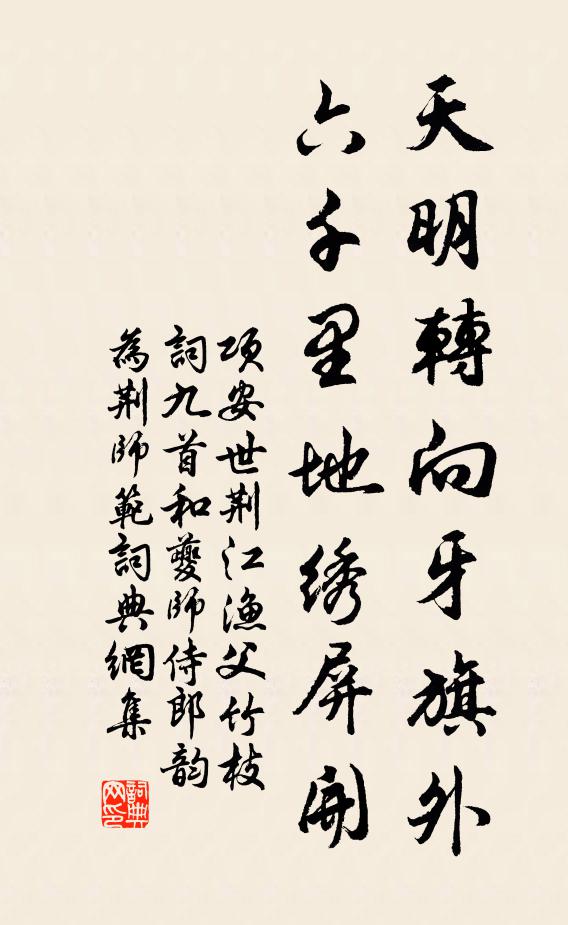 天明轉向牙旗外
六千里地绣屏開
項安世荆江漁父竹枝
詞九首和夔師侍郎韵
為荆師範詞典網集
詞典网印